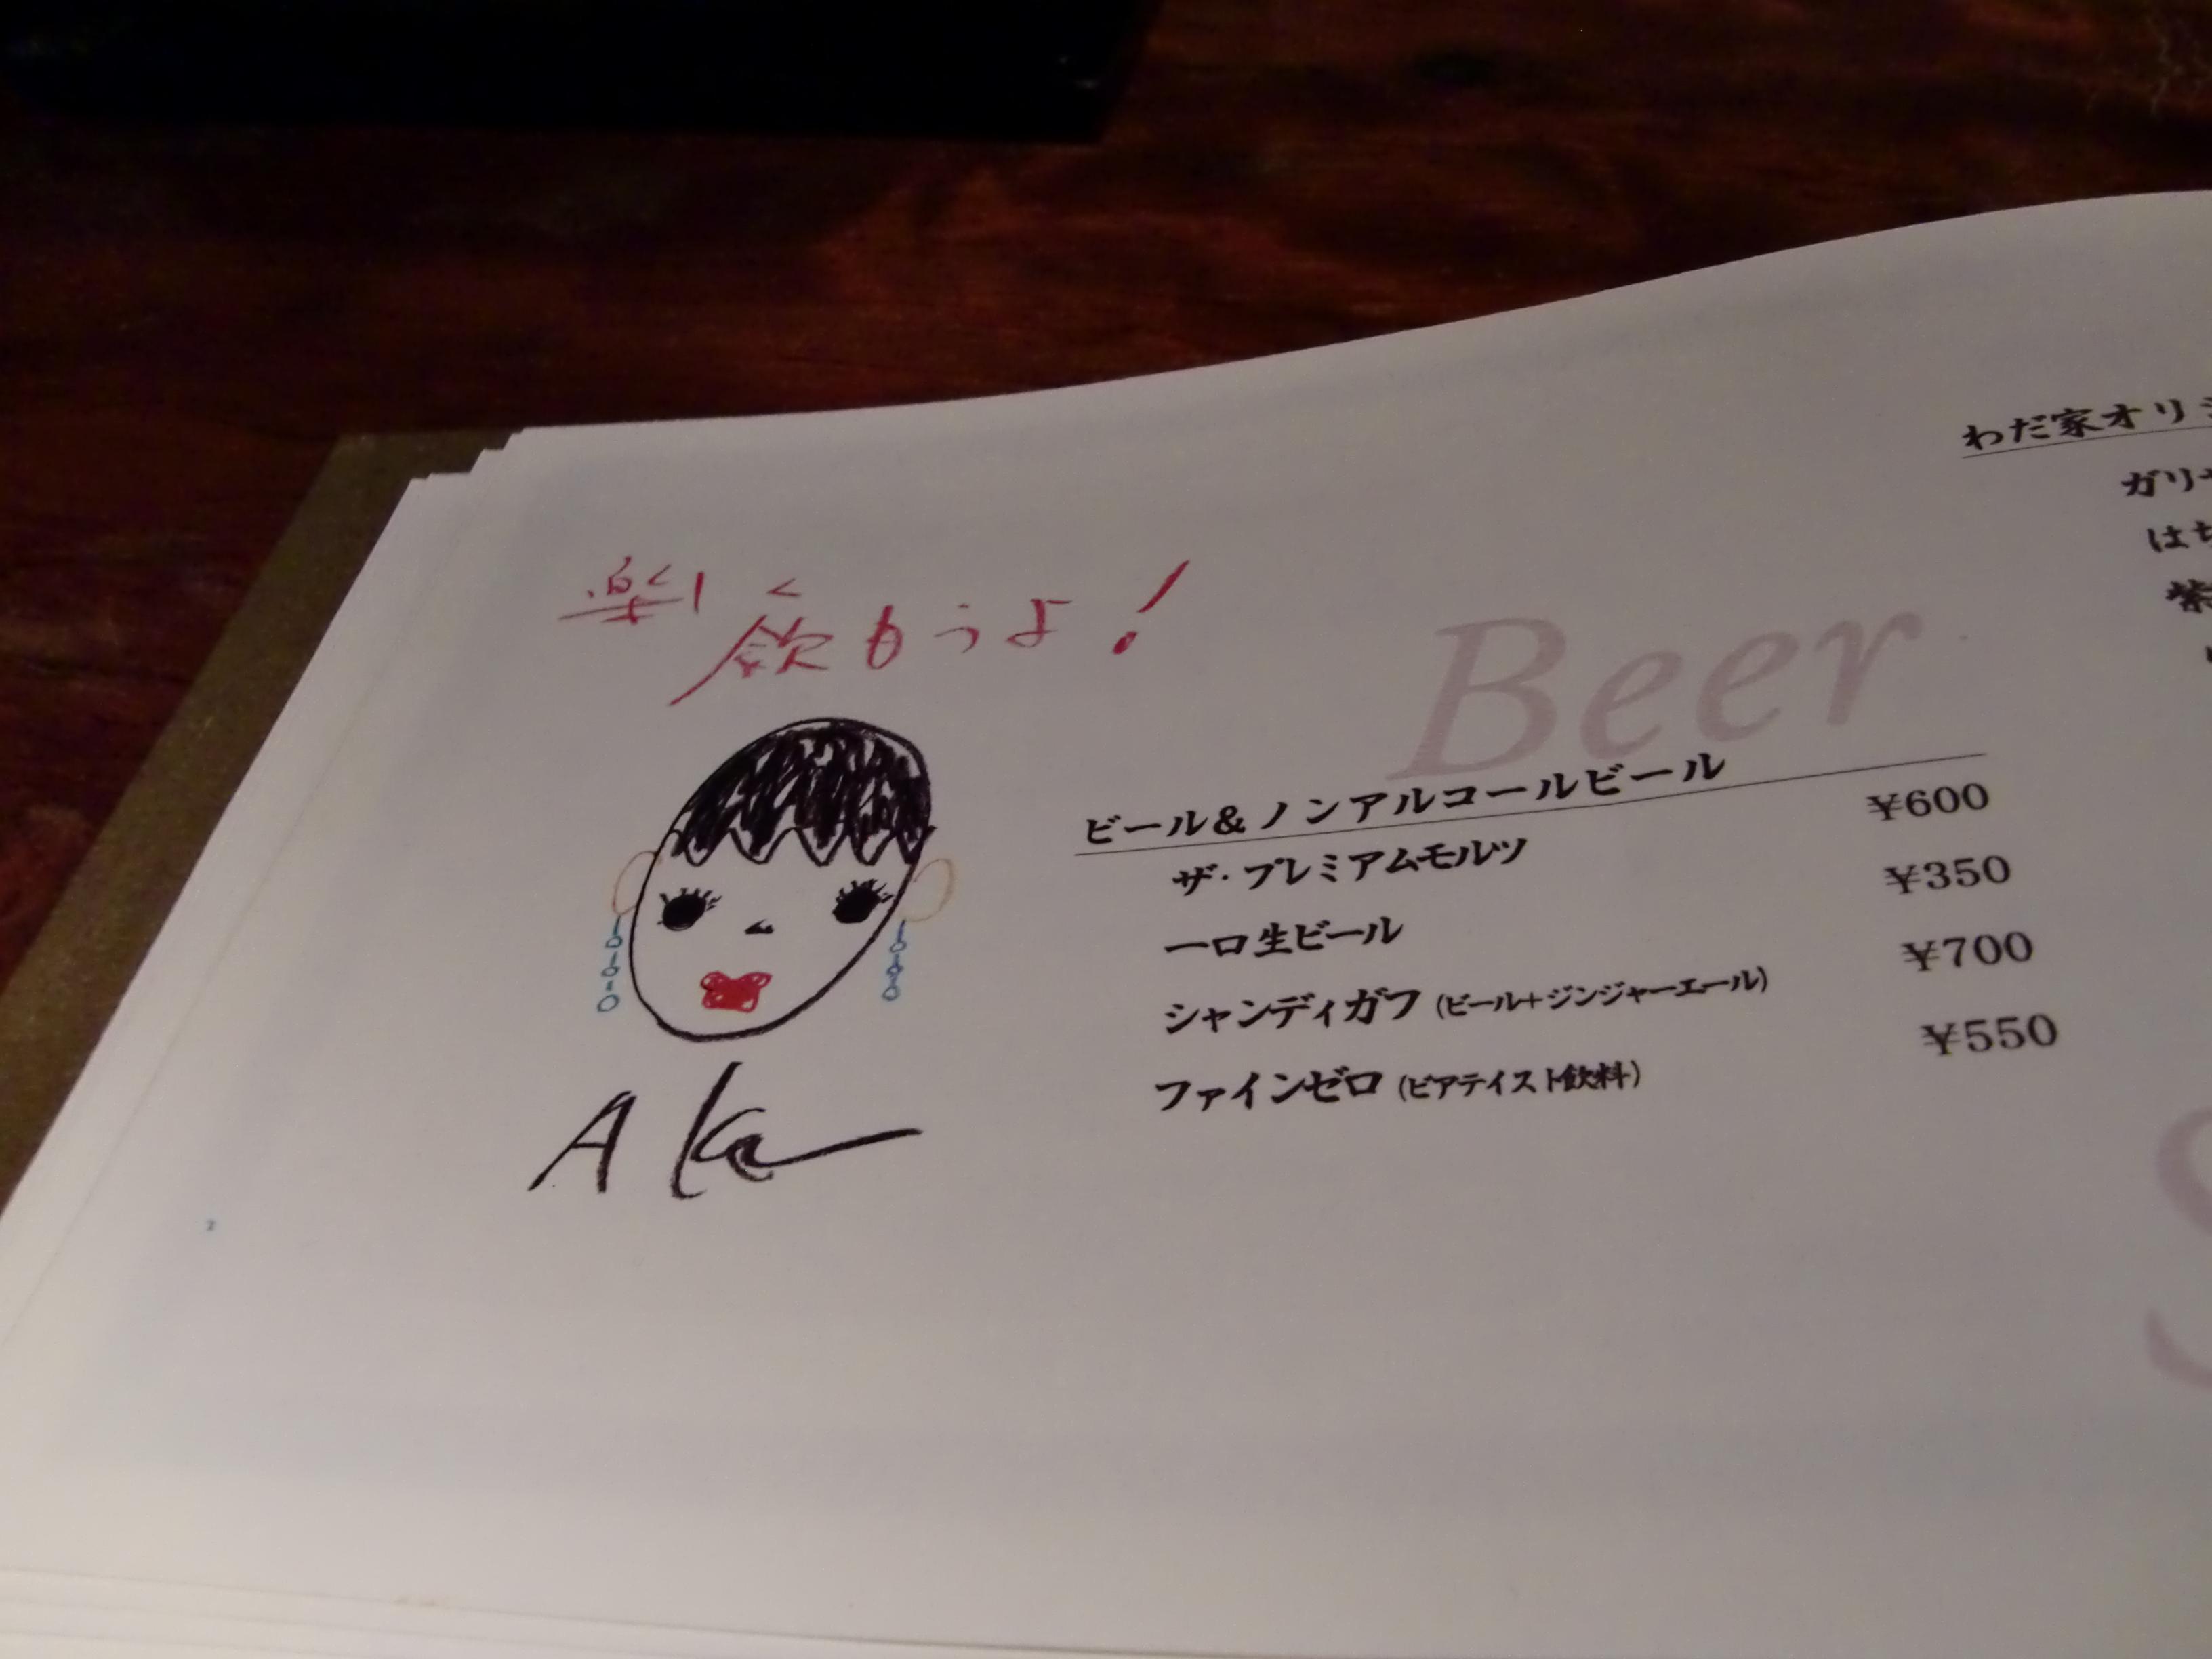 楽しく
飲もうよ!
Aka
Beer
ビール&ノンアルコールビール
ザ・プレミアムモルツ ¥600
一口生ビール ¥350
シャンディガフ (ビール+ジンジャーエール) ¥700
ファインゼロ (ビアテイスト飲料) ¥550
わだ家オリジ
ガリサ
はち
紫
S